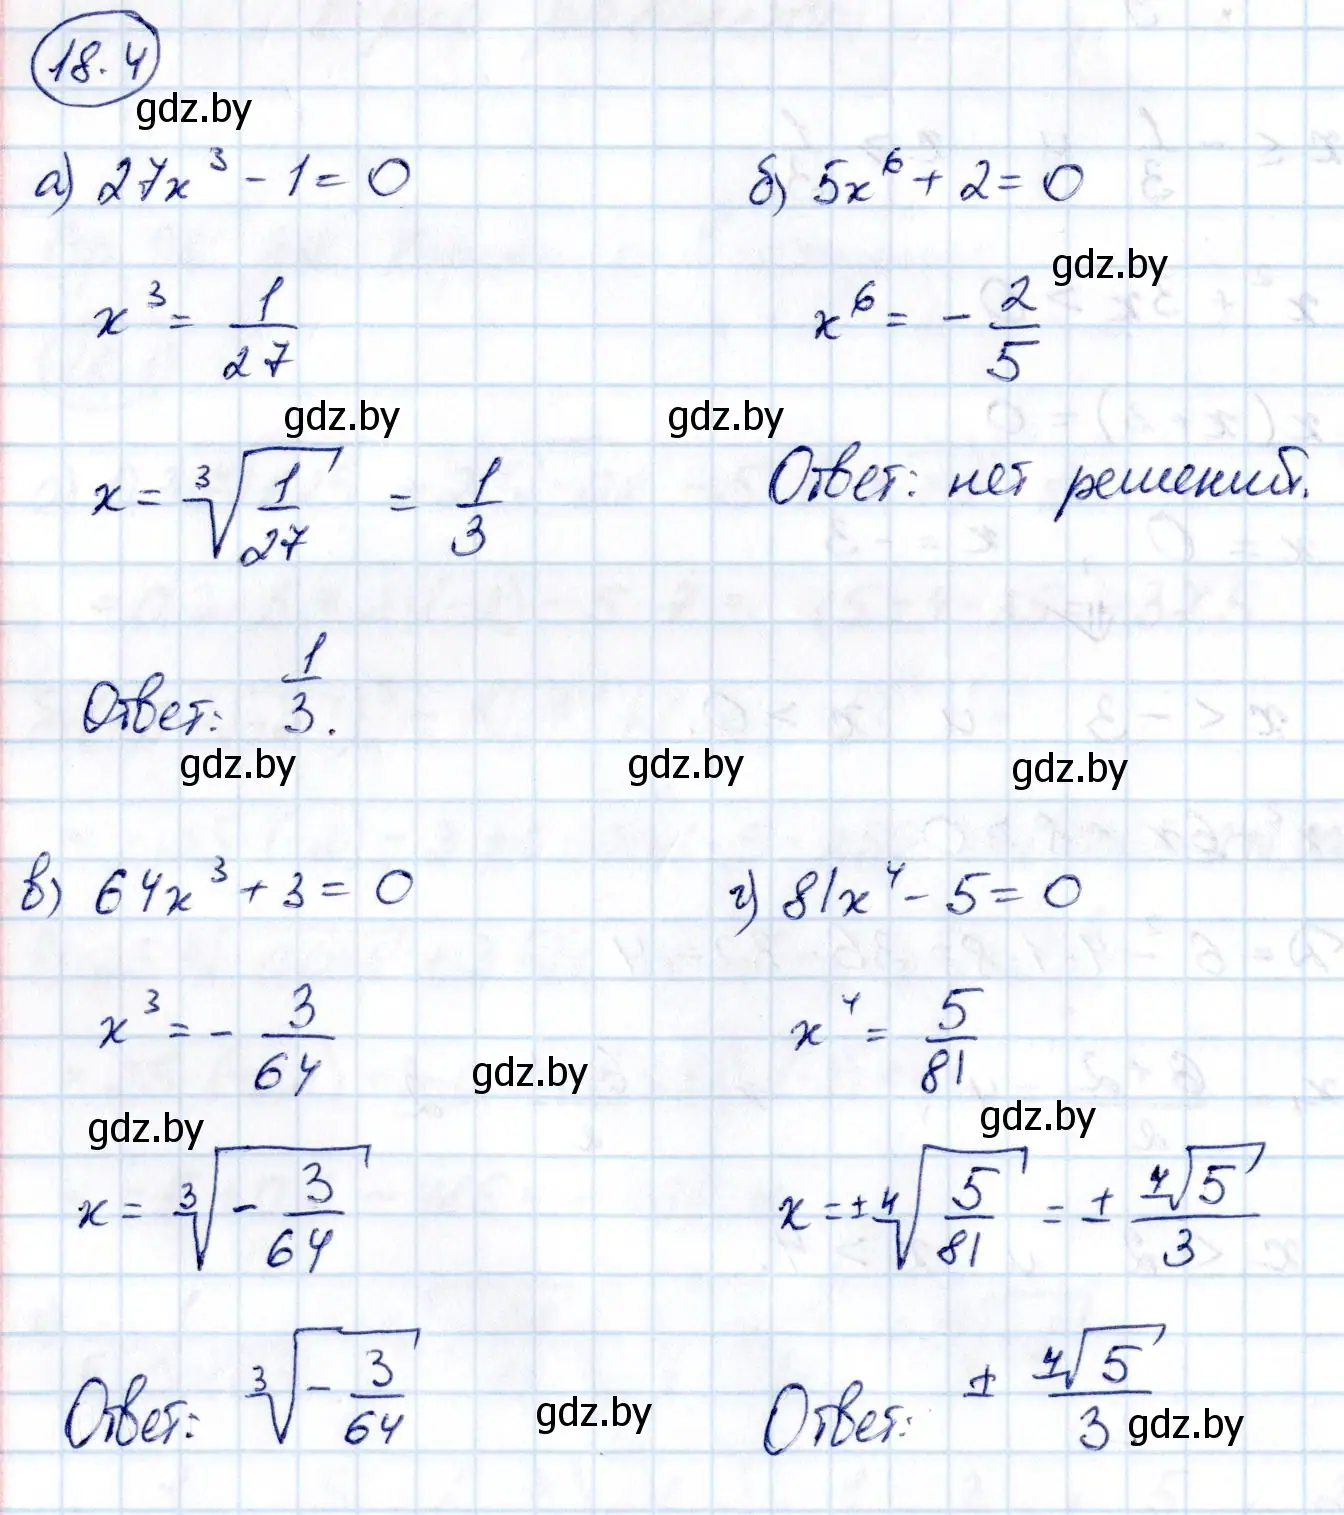 18.4
gdz.by
а) 27x³ - 1 = 0
x³ = 1/27
gdz.by
x = ³√(1/27) = 1/3
Ответ: 1/3.
gdz.by
б) 5x⁶ + 2 = 0
gdz.by
x⁶ = - 2/5
gdz.by
Ответ: нет решений.
gdz.by
gdz.by
в) 64x³ + 3 = 0
x³ = - 3/64
gdz.by
gdz.by
x = ³√(- 3/64)
Ответ: ³√(- 3/64)
gdz.by
г) 81x⁴ - 5 = 0
x⁴ = 5/81
gdz.by
x = ± ⁴√(5/81) = ± ⁴√5/3
Ответ: ± ⁴√5/3
gdz.by